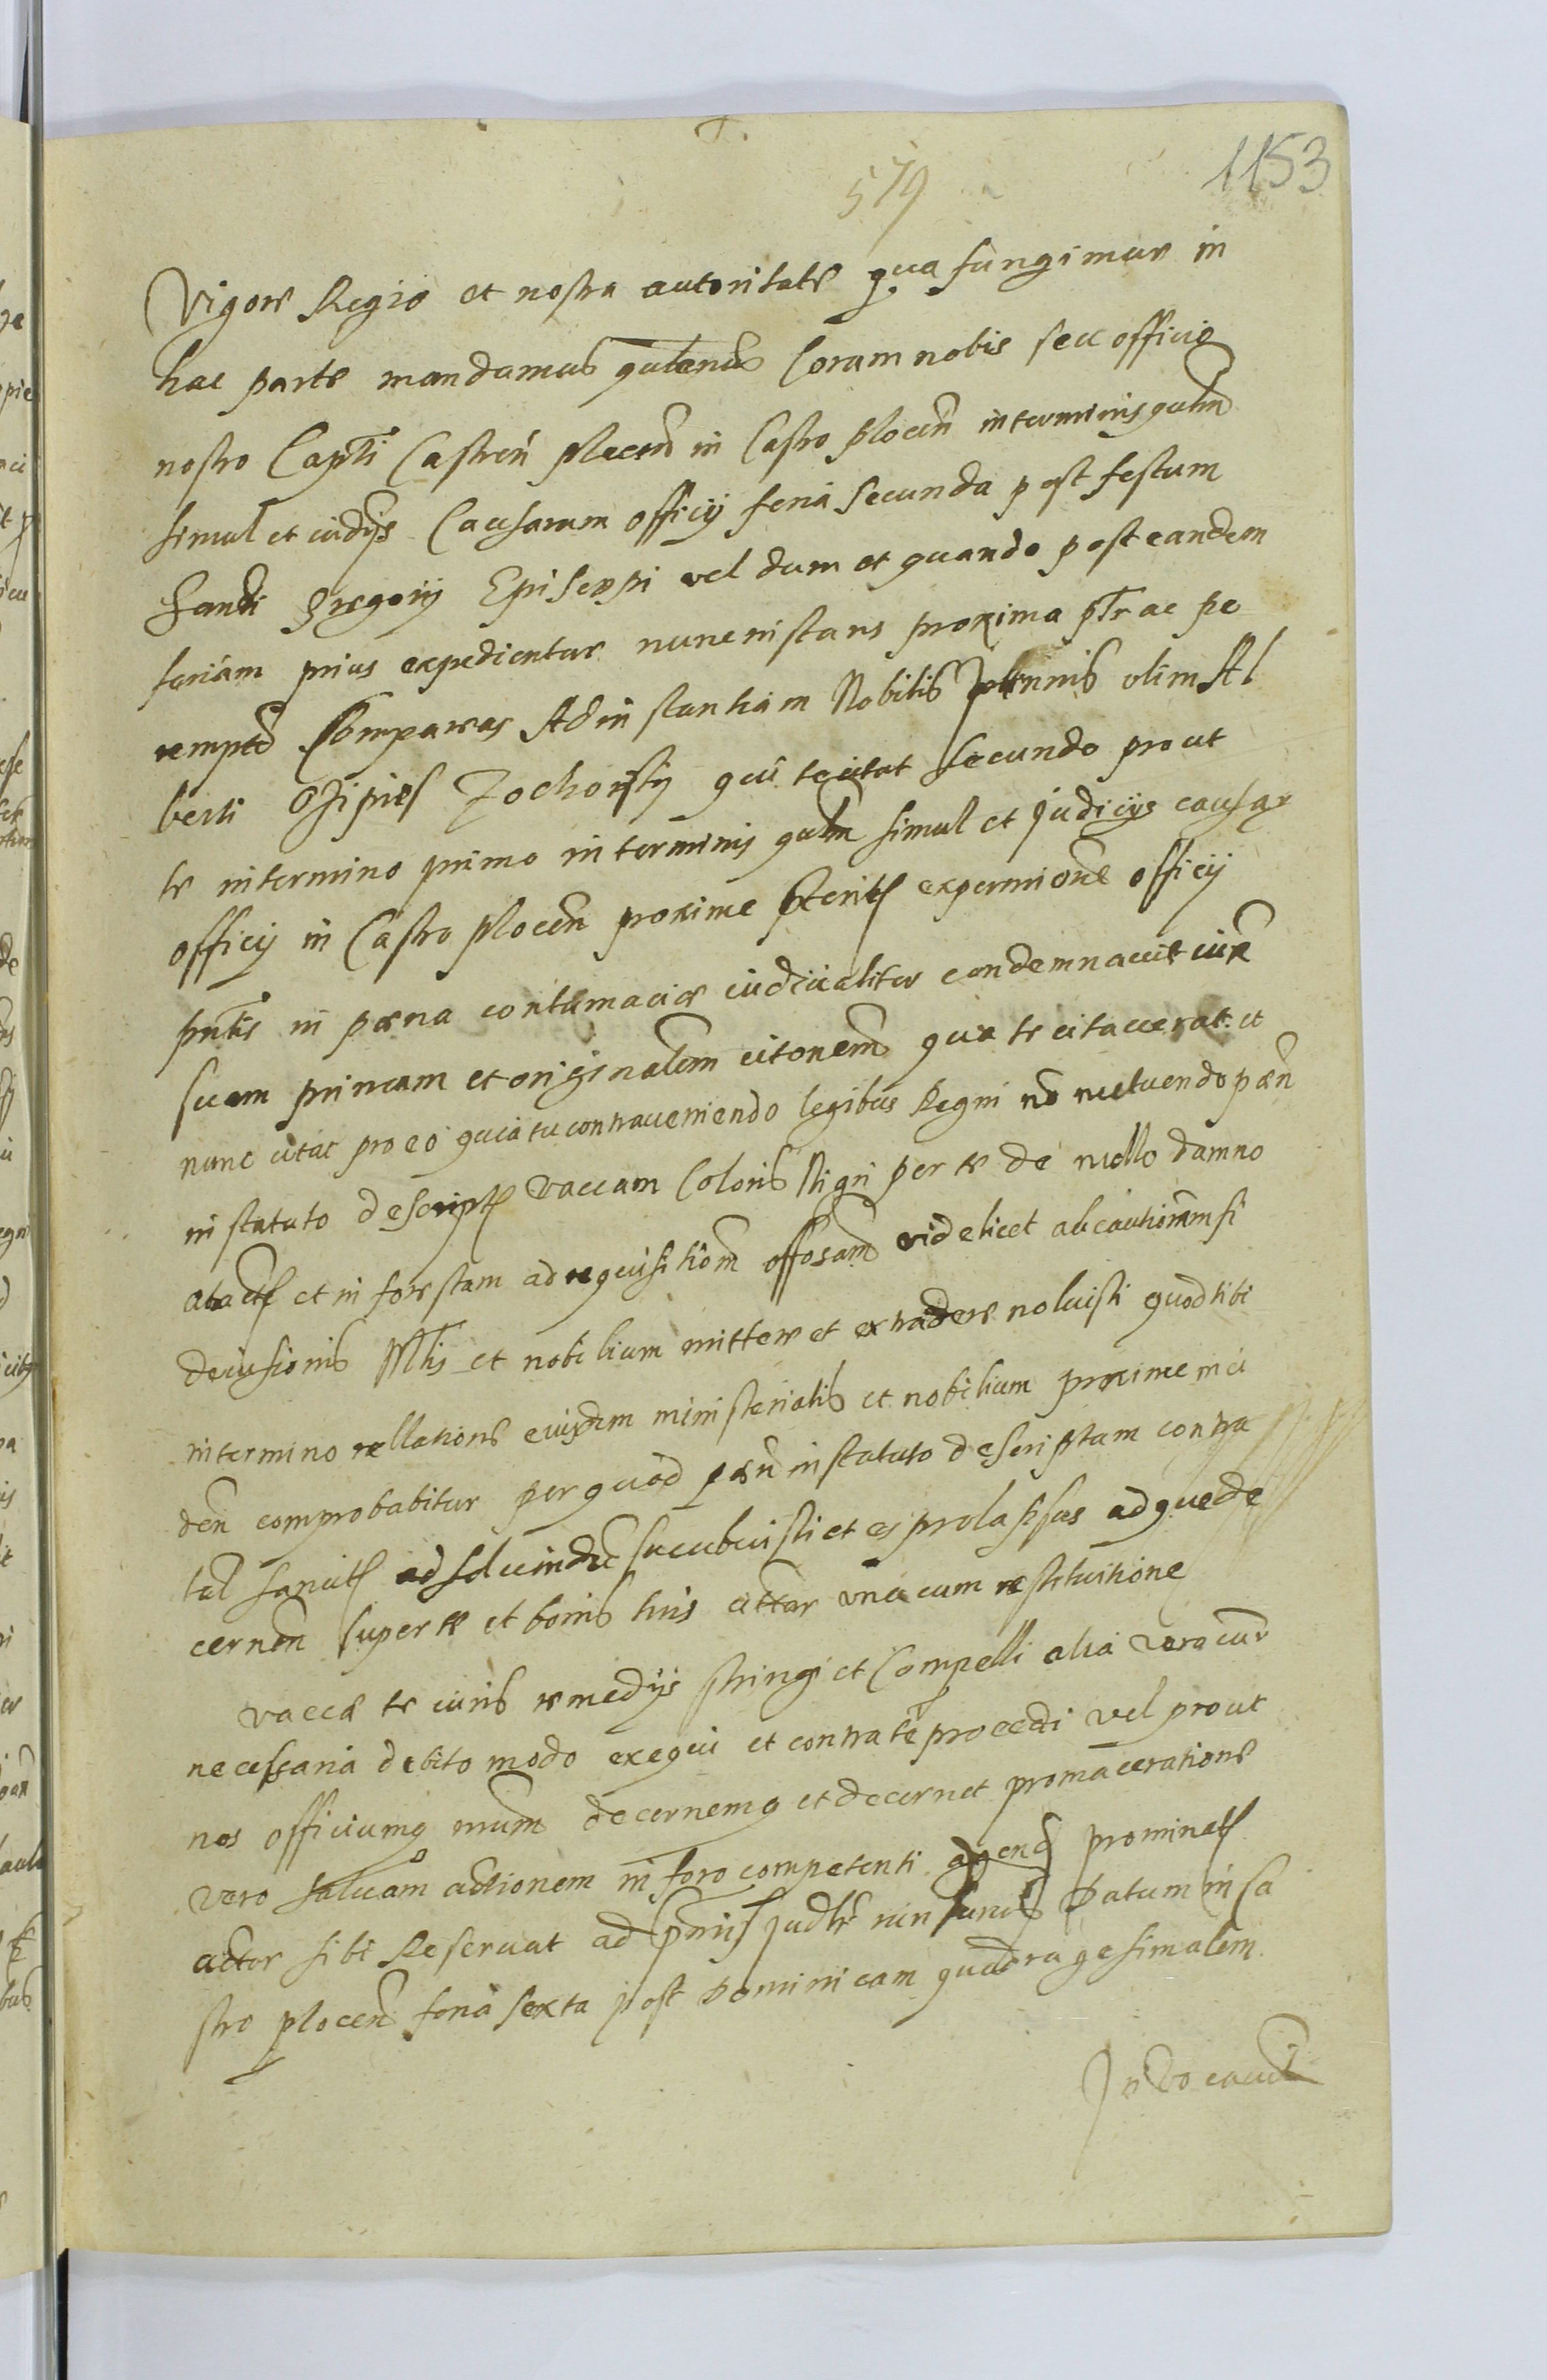 579
1153
Vigore Regio et nostra autoritate qua fungimur in
hac parte mandamus qutenus Coram nobis seu officio
nostro Capti Castren plocen in Castro plocen in terminis qulm
simul et iudijs Causarum officij feria secunda post festum
Sancti Gregorij Episcopi vel dum et quando post eandem
feriam prius expedientur nunc instans proxima ptr ac pe
rempto Compareas Ad in stantiam Nobilis olim Al
berti Zochorsky qui te citat secundo prout
te in termino primo in terminis qulm simul et judicijs causar
officij in Castro plocen proxime officij
pntis in pæna contumaciæ iudicialiter condemnauit iuxe
suam primeam et originalem citonem qua te citauerat et
nunc citat pro eo quia tu contraueniendo legibus Regni no metuendo pæn
in statuto descript vaccam Coloris Nigri per te de nullo damno
abact et in forestam ad requisitiom videlicet
Mlis et nobilium mittere et extradere noluisti quod tibi
in termino rellatione eiusdem ministerialis et nobilium proxime in ei
den comprobabitur per quod pæn in statuto descriptam contra
tal sancit ad soluendu sucubuisti et es prolapsus ad que de
cernen super te et bonis tuis una cum restituitione
vaccæ te iuris remedijs stringi et Compelli alia vera cum
necessaria debito modo exequi et contra te procedi vel prout
nos officiumq nrum decernemq et decernet pro maceratione
vero saluam actionem in foro competenti agend prominat
actor sibi Reseruat ad pmis judlr Datum in Ca
stro plocen feria sexta post Dominicam quadragesimalem